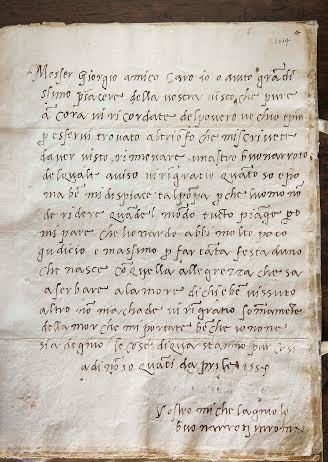 4
1554
Messer giorgio amico caro io o auto grādi
ssimo piacere della vostra visto che pure
ācora vi ricordate del povero vechio e piu
p esservi trovato al triōfo che mi scrivete
daver visto rinovare unaltro buonarroto
del quale aviso vi rigratio quāto so e po
ma bē mi dispiace tal pōpa p che luomo nō
de ridere quādel mōdo tucto piāge po
mi pare che lionardo abbi molto poco
gudicio e massimo p far tāta festa duno
che nasce cō quella allegrezza che sa
a serbare alla morte di chi e bē vissuto
altro nō machade vi rigratio somamēte
dellamor che mi portate bē che io nō ne
sia degnio le cose di qua stanno pur cosi
a di nō so quāti daprile 1554
Vostro michelagniolo
buonarroti in roma